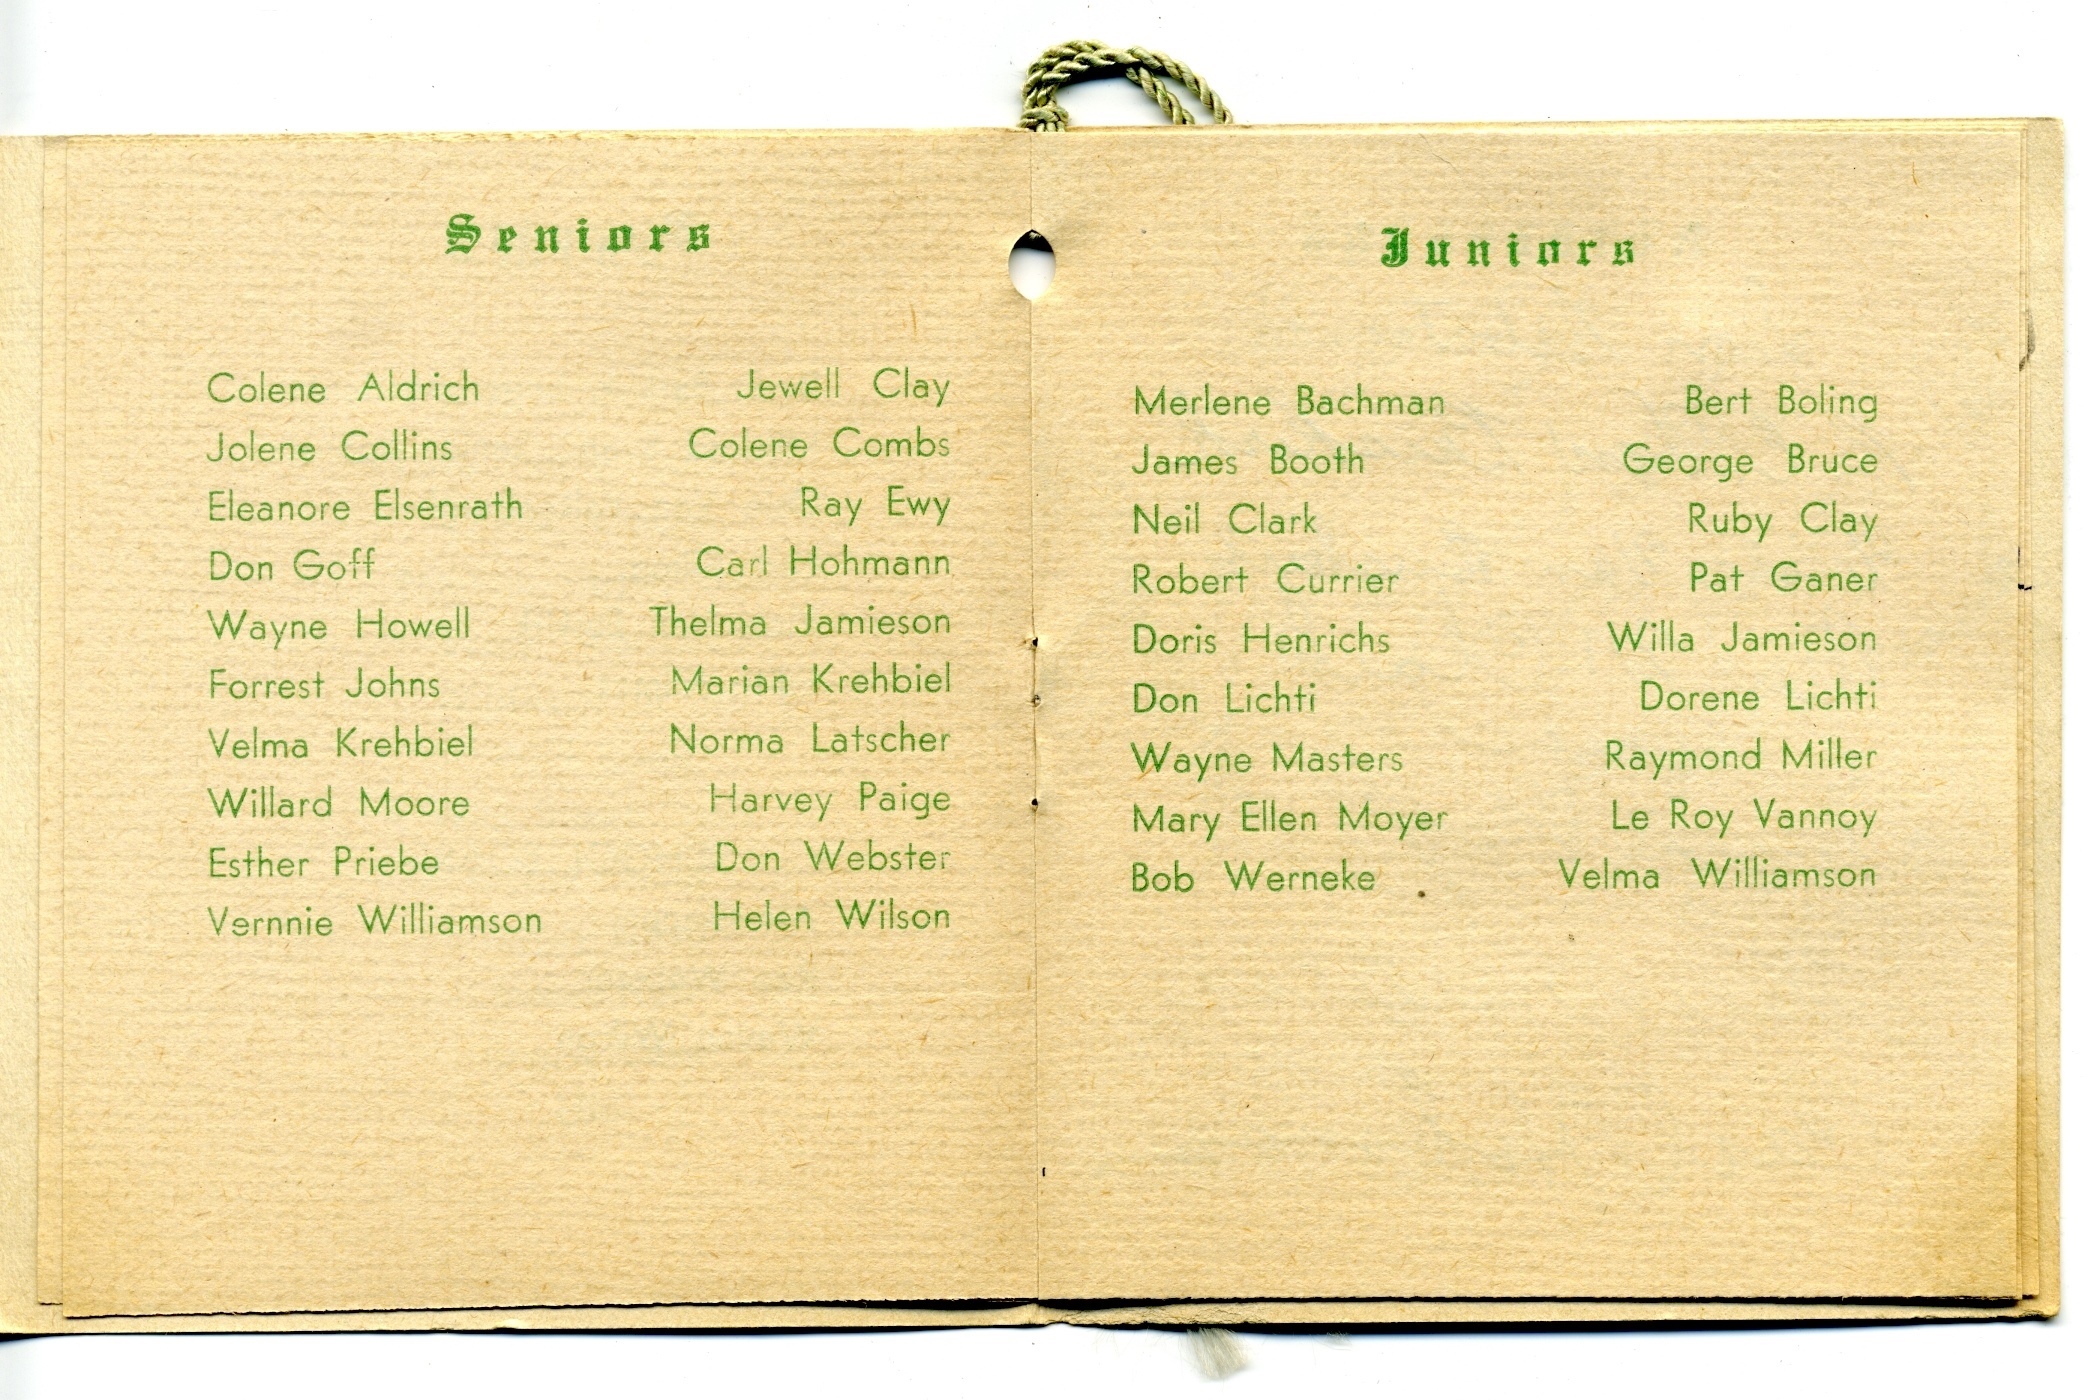 Seniors
Colene Aldrich Jewell Clay
Jolene Collins Colene Combs
Eleanore Elsenrath Ray Ewy
Don Goff Carl Hohmann
Wayne Howell Thelma Jamieson
Forrest Johns Marian Krehbiel
Velma Krehbiel Norma Latscher
Willard Moore Harvey Paige
Esther Priebe Don Webster
Vernnie Williamson Helen Wilson
Juniors
Merlene Bachman Bert Boling
James Booth George Bruce
Neil Clark Ruby Clay
Robert Currier Pat Ganer
Doris Henrichs Willa Jamieson
Don Lichti Dorene Lichti
Wayne Masters Raymond Miller
Mary Ellen Moyer Le Roy Vannoy
Bob Werneke Velma Williamson